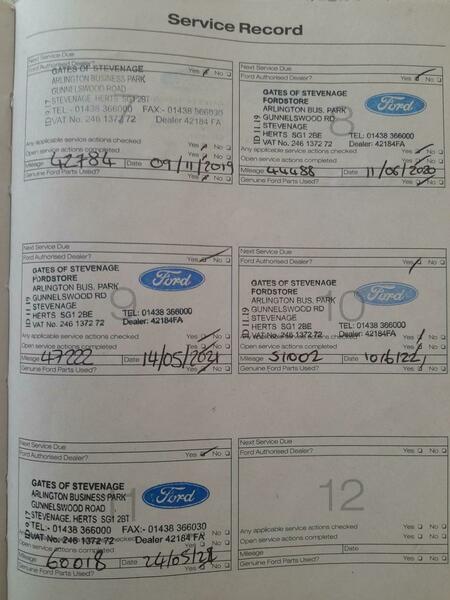 Service Record
Next Service Due
Ford Authorised Dealer? Yes No
GATES OF STEVENAGE
ARLINGTON BUSINESS PARK
GUNNELSWOOD ROAD
STEVENAGE, HERTS SG1 2BT
TEL:- 01438 366000 FAX:- 01438 366030
VAT No. 246 1372 72 Dealer 42184 FA
Any applicable service actions checked Yes No
Open service actions completed Yes No
Mileage 42784 Date 09/11/2019
Genuine Ford Parts Used? Yes No
Next Service Due
Ford Authorised Dealer? Yes No
GATES OF STEVENAGE
FORDSTORE
ARLINGTON BUS. PARK
GUNNELSWOOD RD
STEVENAGE
HERTS SG1 2BE TEL: 01438 366000
VAT No. 246 1372 72 Dealer: 42184FA
ID 11.19
Ford
8
Any applicable service actions checked Yes No
Open service actions completed Yes No
Mileage 44488 Date 11/06/2020
Genuine Ford Parts Used? Yes No
Next Service Due
Ford Authorised Dealer? Yes No
GATES OF STEVENAGE
FORDSTORE
ARLINGTON BUS. PARK
GUNNELSWOOD RD
STEVENAGE
HERTS SG1 2BE TEL: 01438 366000
VAT No. 246 1372 72 Dealer: 42184FA
ID 11.19
Ford
9
Any applicable service actions checked Yes No
Open service actions completed Yes No
Mileage 47222 Date 14/05/2021
Genuine Ford Parts Used? Yes No
Next Service Due
Ford Authorised Dealer? Yes No
GATES OF STEVENAGE
FORDSTORE
ARLINGTON BUS. PARK
GUNNELSWOOD RD
STEVENAGE
HERTS SG1 2BE TEL: 01438 366000
VAT No. 246 1372 72 Dealer: 42184FA
ID 11.19
Ford
10
Any applicable service actions checked Yes No
Open service actions completed Yes No
Mileage 51002 Date
Genuine Ford Parts Used? Yes No
Next Service Due
Ford Authorised Dealer? Yes No
GATES OF STEVENAGE
ARLINGTON BUSINESS PARK
GUNNELSWOOD ROAD
STEVENAGE, HERTS SG1 2BT
TEL:- 01438 366000 FAX:- 01438 366030
VAT No. 246 1372 72 Dealer 42184 FA
Ford
11
Open service actions completed Yes No
Mileage 60018 Date
Genuine Ford Parts Used? Yes No
Next Service Due
Ford Authorised Dealer? Yes No
12
Any applicable service actions checked Yes No
Open service actions completed Yes No
Mileage Date
Genuine Ford Parts Used? Yes No